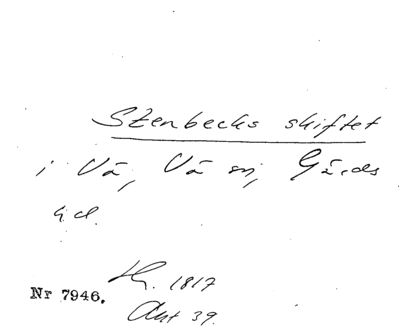 Stenbecks skiftet
i Vä, Vä sn, Gärds
hd.
H. 1817
Nr 7946. Akt 39.